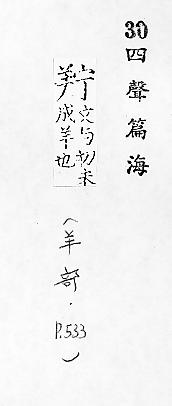 30四聲篇海
羜丈与切未
成羊也
(羊部.P.533)